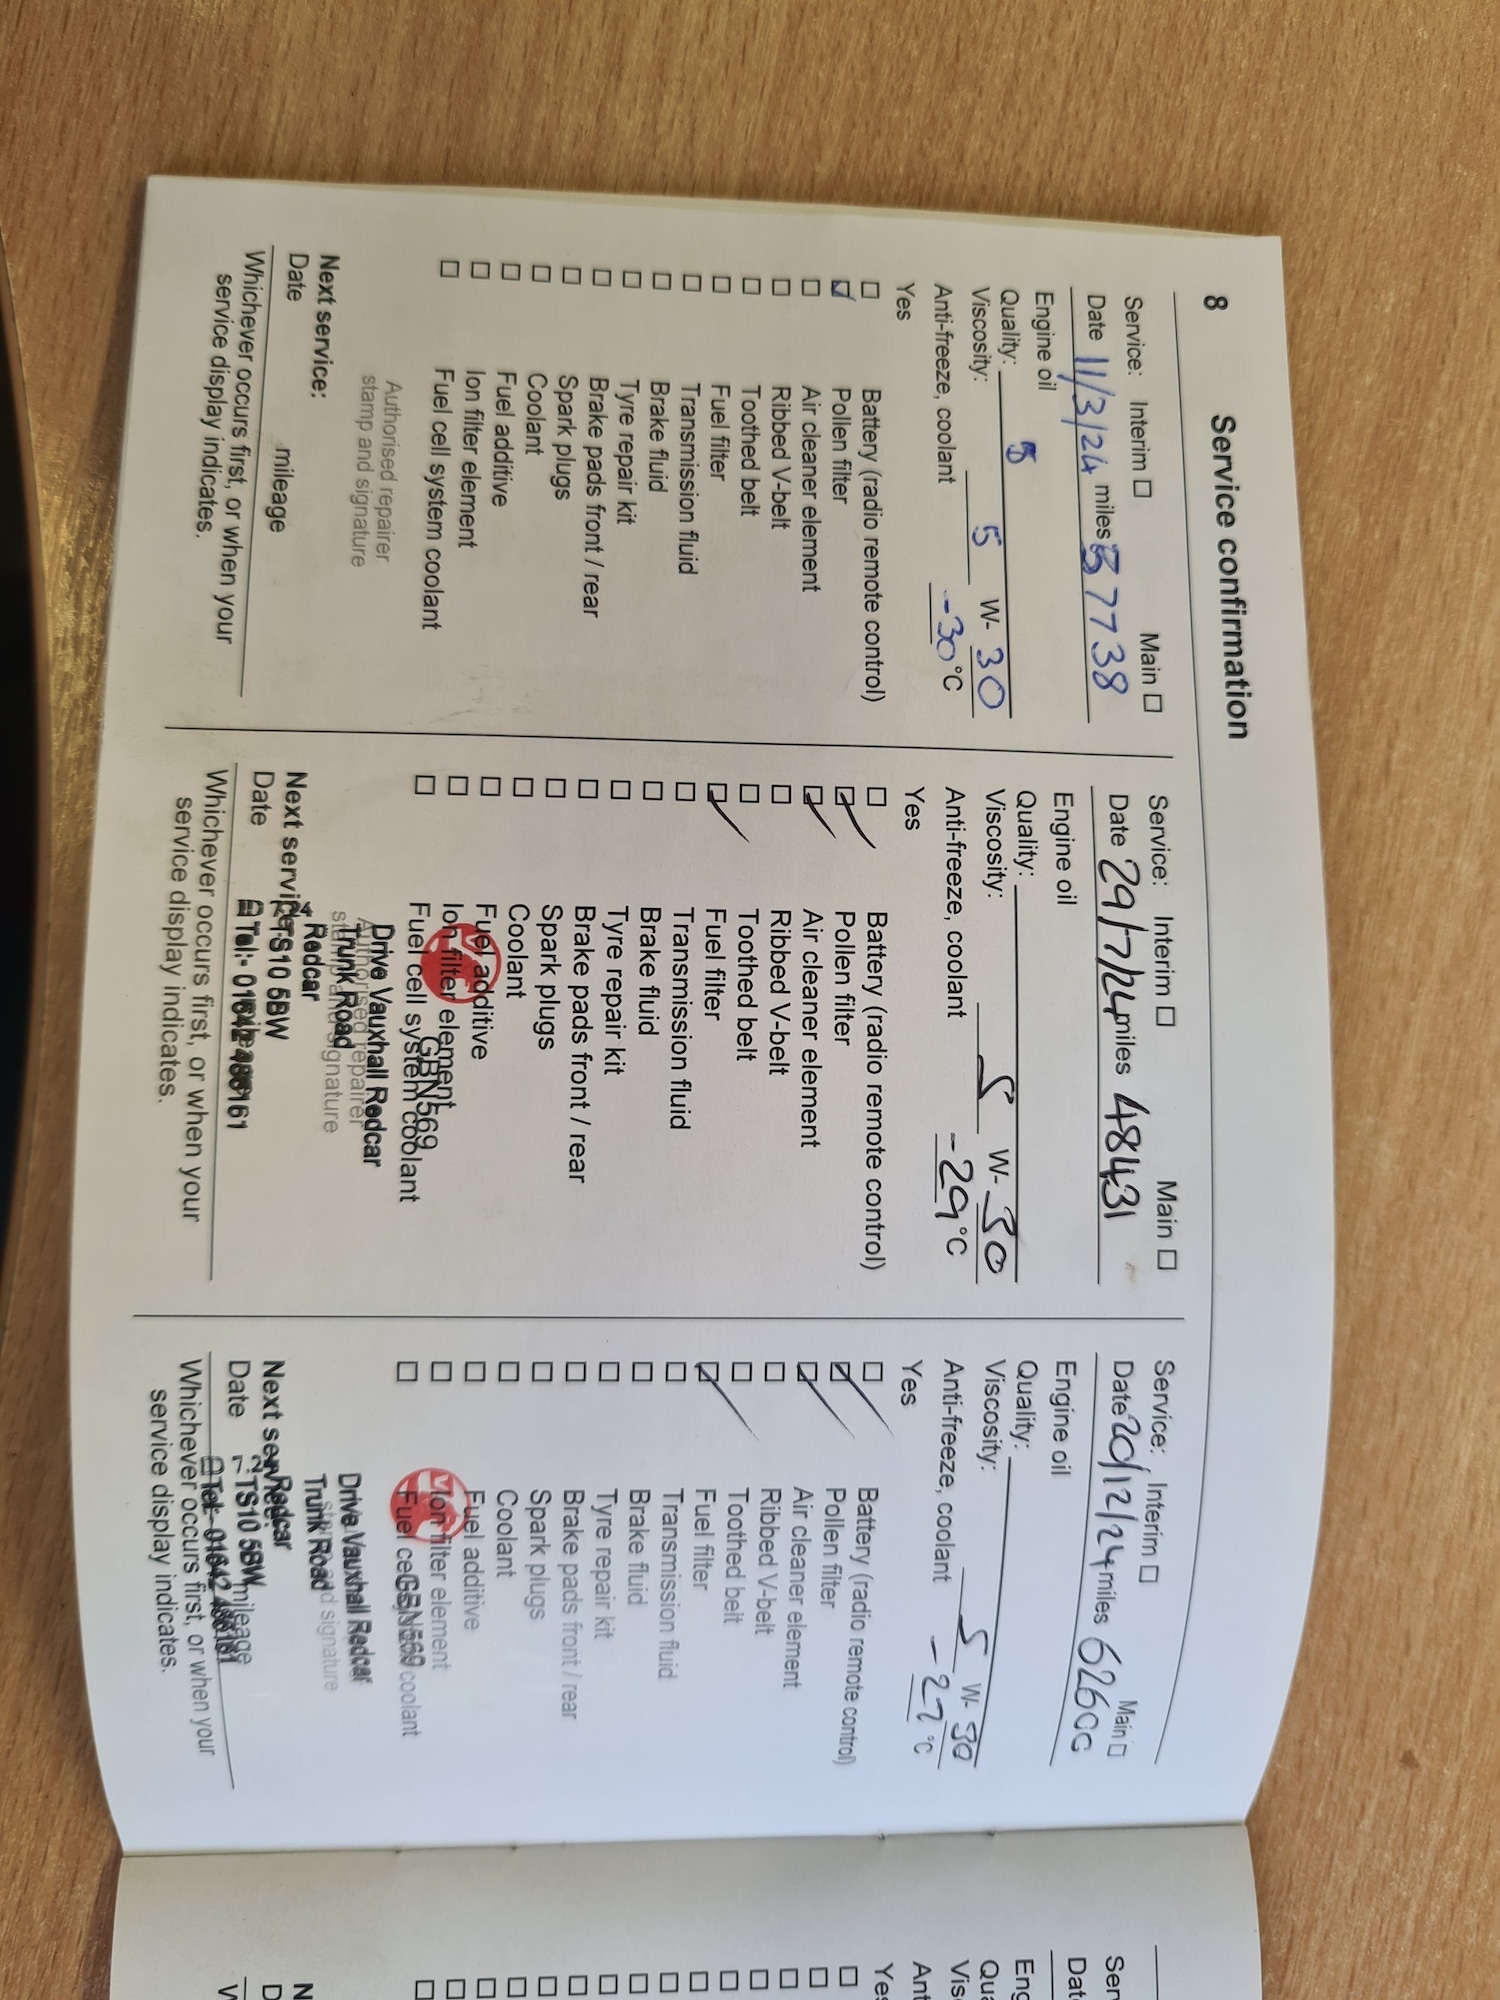 8 Service confirmation
Service: Interim ☐ Main ☐
Date 11/3/24 miles 37738
Engine oil
Quality: 5
Viscosity: 5 W- 30
Anti-freeze, coolant -30 °C
Yes
☐ Battery (radio remote control)
☑ Pollen filter
☐ Air cleaner element
☐ Ribbed V-belt
☐ Toothed belt
☐ Fuel filter
☐ Transmission fluid
☐ Brake fluid
☐ Tyre repair kit
☐ Brake pads front / rear
☐ Spark plugs
☐ Coolant
☐ Fuel additive
☐ Ion filter element
☐ Fuel cell system coolant
Authorised repairer
stamp and signature
Next service:
Date mileage
Whichever occurs first, or when your
service display indicates.
Service: Interim ☐ Main ☐
Date 29/7/24 miles 48431
Engine oil
Quality:
Viscosity: 5 W- 30
Anti-freeze, coolant -29 °C
Yes
☐ Battery (radio remote control)
☑ Pollen filter
☑ Air cleaner element
☐ Ribbed V-belt
☐ Toothed belt
☑ Fuel filter
☐ Transmission fluid
☐ Brake fluid
☐ Tyre repair kit
☐ Brake pads front / rear
☐ Spark plugs
☐ Coolant
☐ Fuel additive
☐ Ion filter element
☐ Fuel cell system coolant
GBN569
Drive Vauxhall Redcar
Authorised repairer
Trunk Road
stamp and signature
Redcar
Next service:
TS10 5BW
Date
Tel:- 01642
Whichever occurs first, or when your
service display indicates.
Service: Interim ☐ Main ☐
Date 20/12/24 miles 62600
Engine oil
Quality:
Viscosity: 5 W- 30
Anti-freeze, coolant -27 °C
Yes
☐ Battery (radio remote control)
☑ Pollen filter
☑ Air cleaner element
☐ Ribbed V-belt
☐ Toothed belt
☑ Fuel filter
☐ Transmission fluid
☐ Brake fluid
☐ Tyre repair kit
☐ Brake pads front / rear
☐ Spark plugs
☐ Coolant
☐ Fuel additive
☐ Ion filter element
☐ Fuel cell coolant
GBN569
Drive Vauxhall Redcar
Trunk Road
signature
Redcar
Next service:
TS10 5BW
Date mileage
Tel:- 01642
Whichever occurs first, or when your
service display indicates.